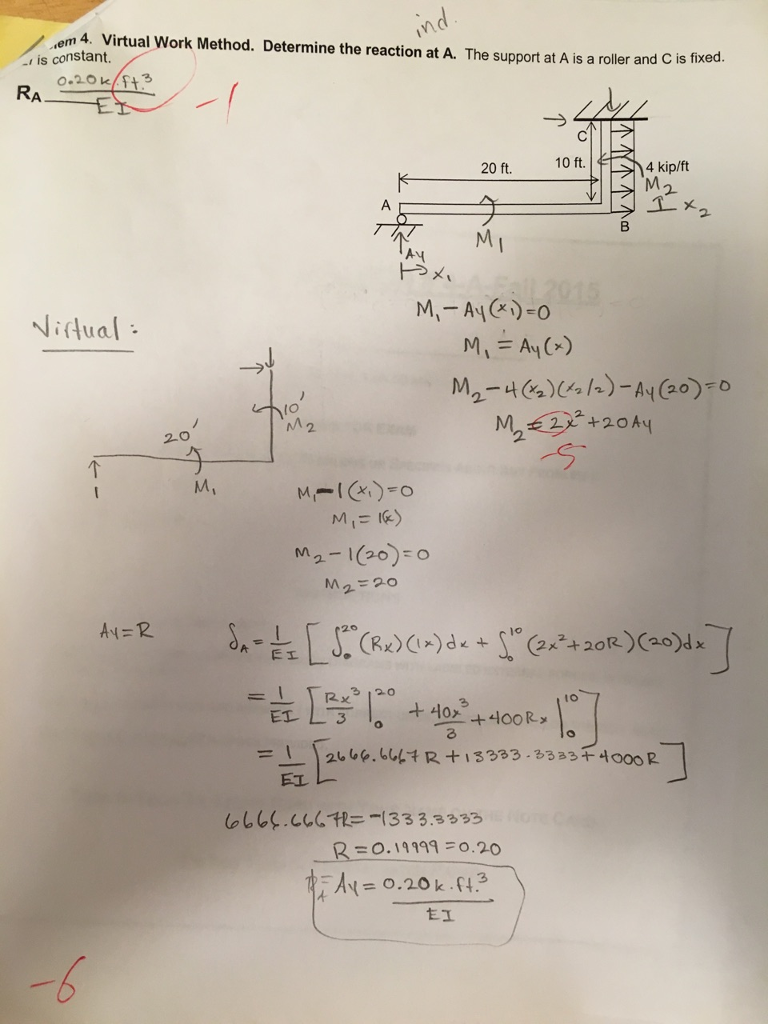 ind.
em 4. Virtual Work Method. Determine the reaction at A. The support at A is a roller and C is fixed.
is constant.
RA 0.20k.ft.³ / EI
-1
C
20 ft.
10 ft.
4 kip/ft
M2
x2
A
B
M1
Ay
x1
M1 - Ay(x1)=0
M1 = Ay(x)
M2 - 4(x2)(x2/2) - Ay(20)=0
M2 = 2x² + 20Ay
-5
Virtual:
10'
M2
20'
1
M1
M1 - 1(x1)=0
M1 = 1(x)
M2 - 1(20)=0
M2 = 20
Ay=R
δA = 1/EI [∫₀²⁰ (Rx)(1x)dx + ∫₀¹⁰ (2x²+20R)(20)dx]
= 1/EI [Rx³/3 |₀²⁰ + 40x³/3 + 400Rx |₀¹⁰]
= 1/EI [2666.6667R + 13333.3333 + 4000R]
6666.6667R = -1333.3333
R = 0.19999 = 0.20
RA = Ay = 0.20k.ft.³ / EI
-6